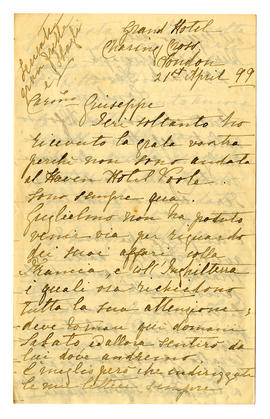 Grand Hotel
Charing Cross
London
21st April 99
Carino Giuseppe
Ieri soltanto ho
ricevuto la grata vostra
perchè non sono andata
al Haven Hotel Poole.
Sono sempre qua.
Guglielmo non ha potuto
venir via per riguardo
dei suoi affari colla
Francia, e coll' Inghilterra
i quali ora richiedono
tutta la sua attenzione;
deve tornare qui domani
Sabato, e allora sentirò da
lui dove andremo.
È meglio però che indirizzate
le mie lettere sempre